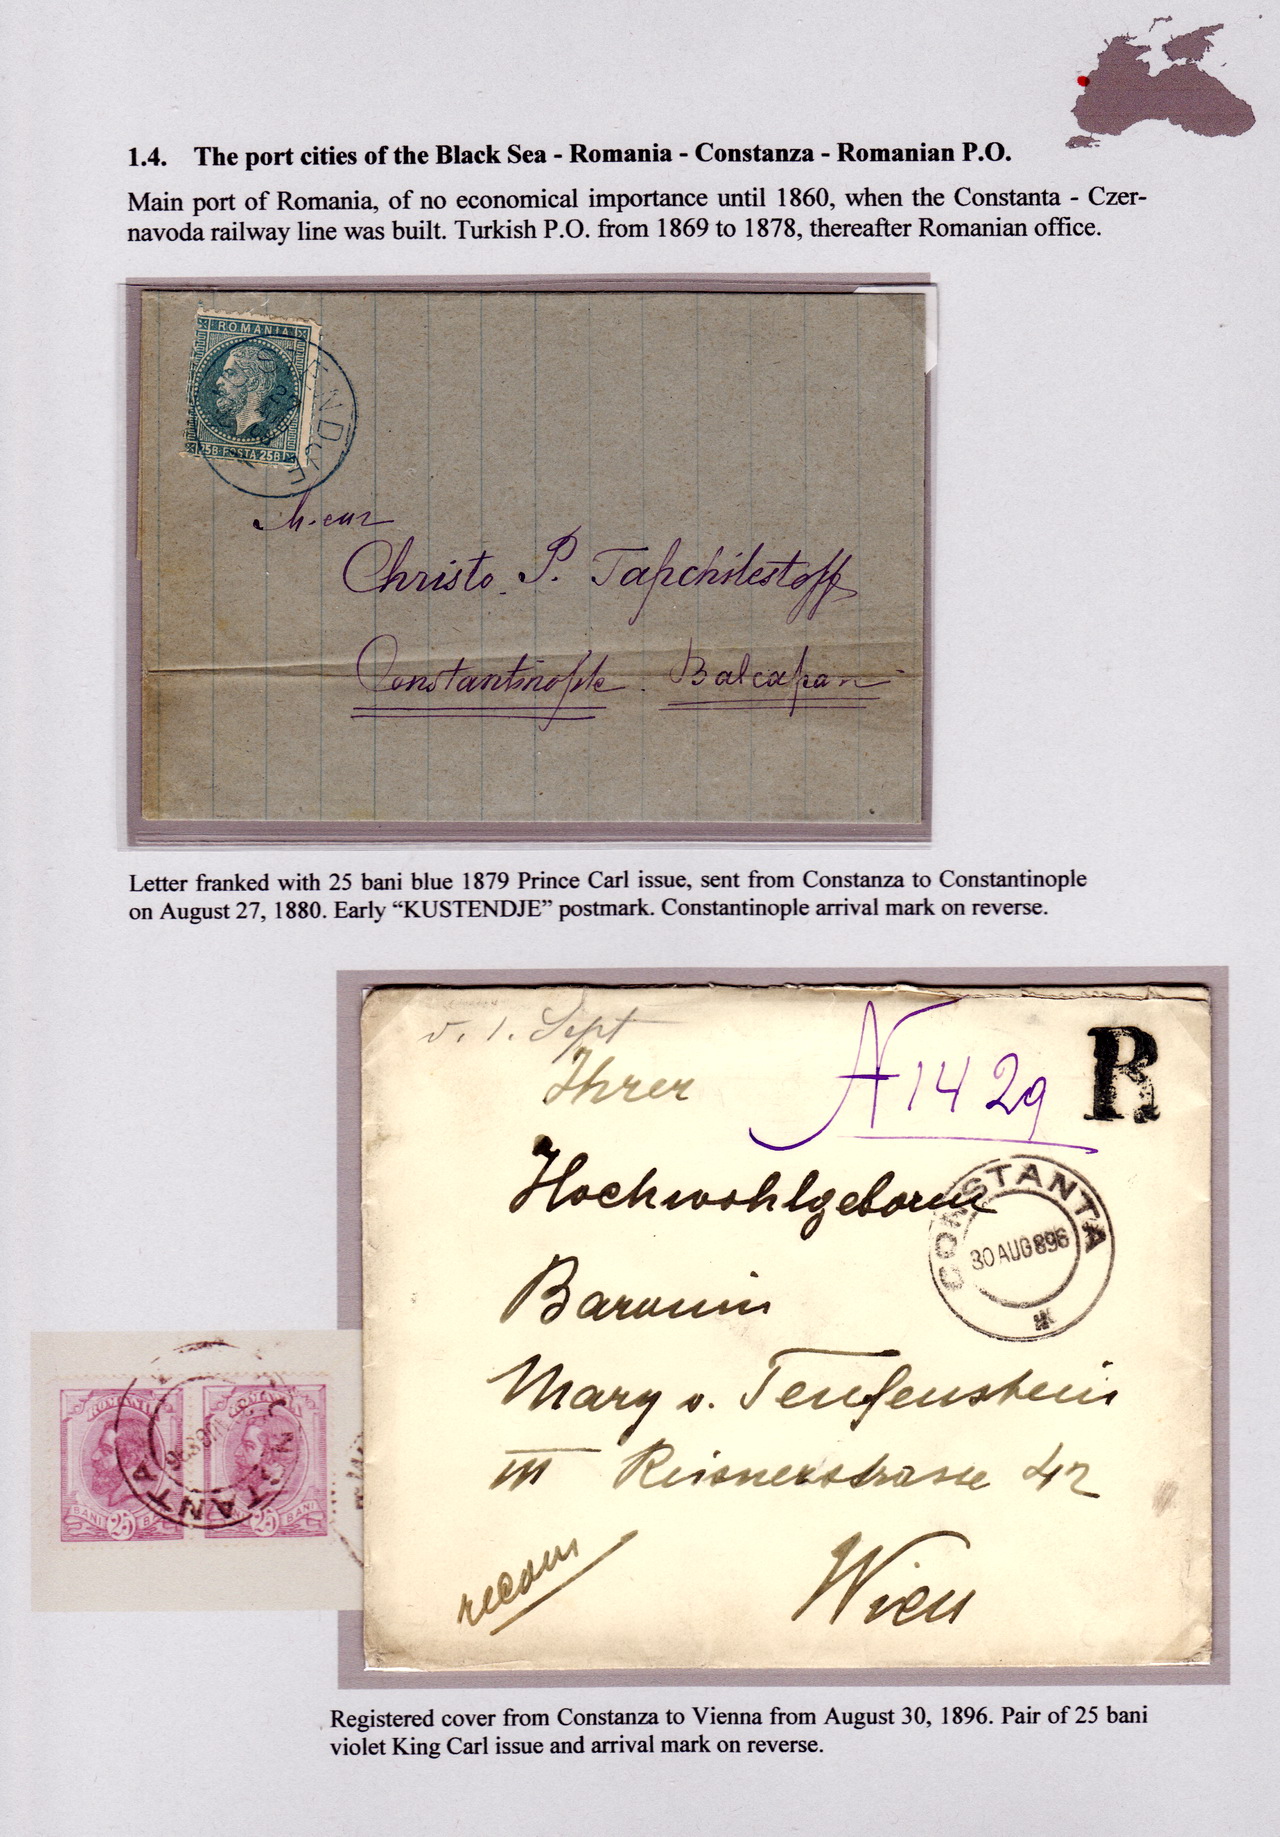 1.4. The port cities of the Black Sea - Romania - Constanza - Romanian P.O.
Main port of Romania, of no economical importance until 1860, when the Constanta - Czer-
navoda railway line was built. Turkish P.O. from 1869 to 1878, thereafter Romanian office.
ROMANIA
25B POSTA 25B
Christo P. Tapchilestoff
Constantinople. Balcapan
Letter franked with 25 bani blue 1879 Prince Carl issue, sent from Constanza to Constantinople
on August 27, 1880. Early “KUSTENDJE” postmark. Constantinople arrival mark on reverse.
v. 1. Sept
Ihrer
N 1429
R
Hochwohlgeboren
CONSTANTA
30 AUG 896
Baronin
Mary v. Teufenstein
III Reisnerstrasse 42
recom
Wien
ROMANIA
BANI 25 BANI
25 BANI
Registered cover from Constanza to Vienna from August 30, 1896. Pair of 25 bani
violet King Carl issue and arrival mark on reverse.